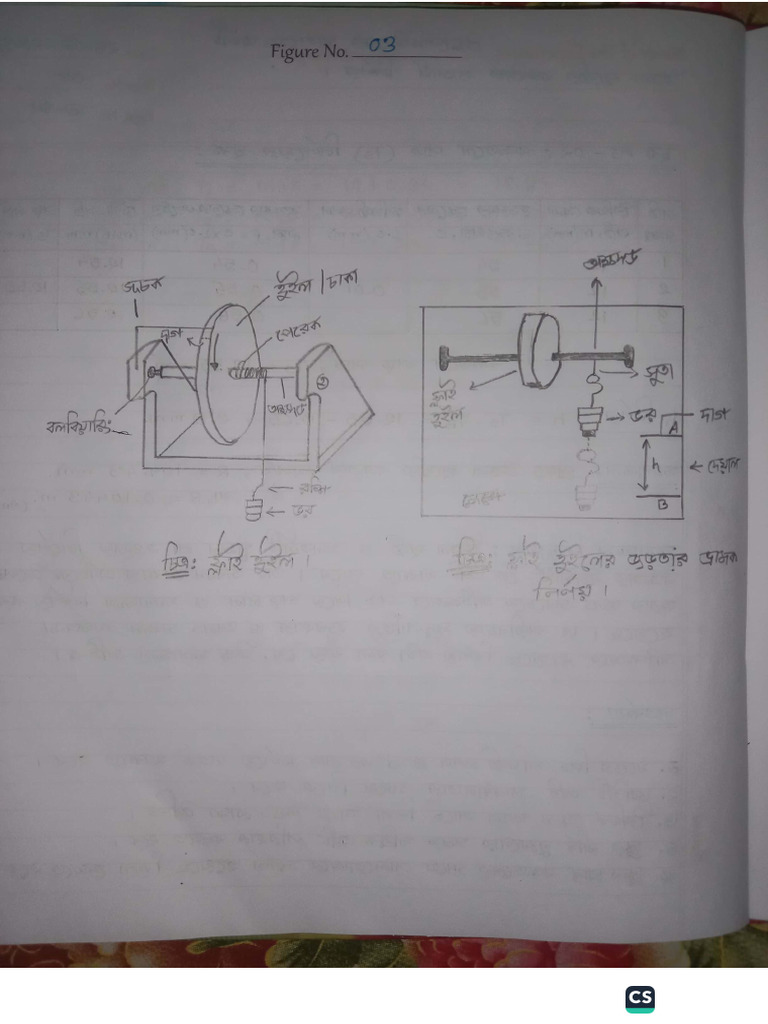 Figure No. 03
সূচক
হুইল / চাকা
দাগ
পেরেক
অক্ষদণ্ড
বলবিয়ারিং
রশি
ভর
চিত্র: ফ্লাই হুইল।
অক্ষদণ্ড
সুতা
ফ্লাই
হুইল
ভর
দাগ
A
h
দেয়াল
B
চিত্র: ফ্লাই হুইলের জড়তার ভ্রামক
নির্ণয়।
CS